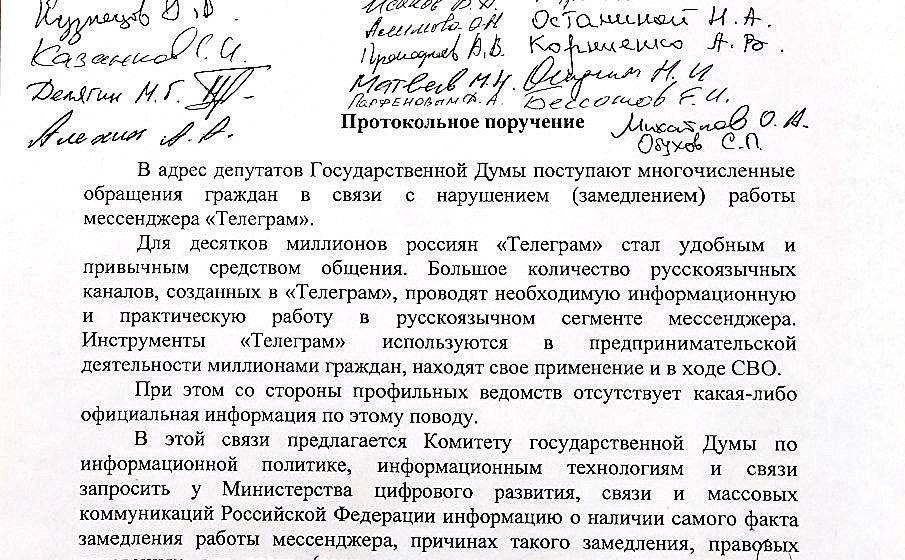 Кузнецов
Казанков С. И.
Делягин М. Г.
Алехин А. А.
Алимова О.Н.
Прокофьев А.В.
Матвеев М.Н.
Парфенов Д. А.
Останиной Н. А.
Корниенко А. В.
Бессонов Е. И.
Михайлов О. А.
Обухов С. П.
Протокольное поручение
В адрес депутатов Государственной Думы поступают многочисленные
обращения граждан в связи с нарушением (замедлением) работы
мессенджера «Телеграм».
Для десятков миллионов россиян «Телеграм» стал удобным и
привычным средством общения. Большое количество русскоязычных
каналов, созданных в «Телеграм», проводят необходимую информационную
и практическую работу в русскоязычном сегменте мессенджера.
Инструменты «Телеграм» используются в предпринимательской
деятельности миллионами граждан, находят свое применение и в ходе СВО.
При этом со стороны профильных ведомств отсутствует какая-либо
официальная информация по этому поводу.
В этой связи предлагается Комитету государственной Думы по
информационной политике, информационным технологиям и связи
запросить у Министерства цифрового развития, связи и массовых
коммуникаций Российской Федерации информацию о наличии самого факта
замедления работы мессенджера, причинах такого замедления, правовых